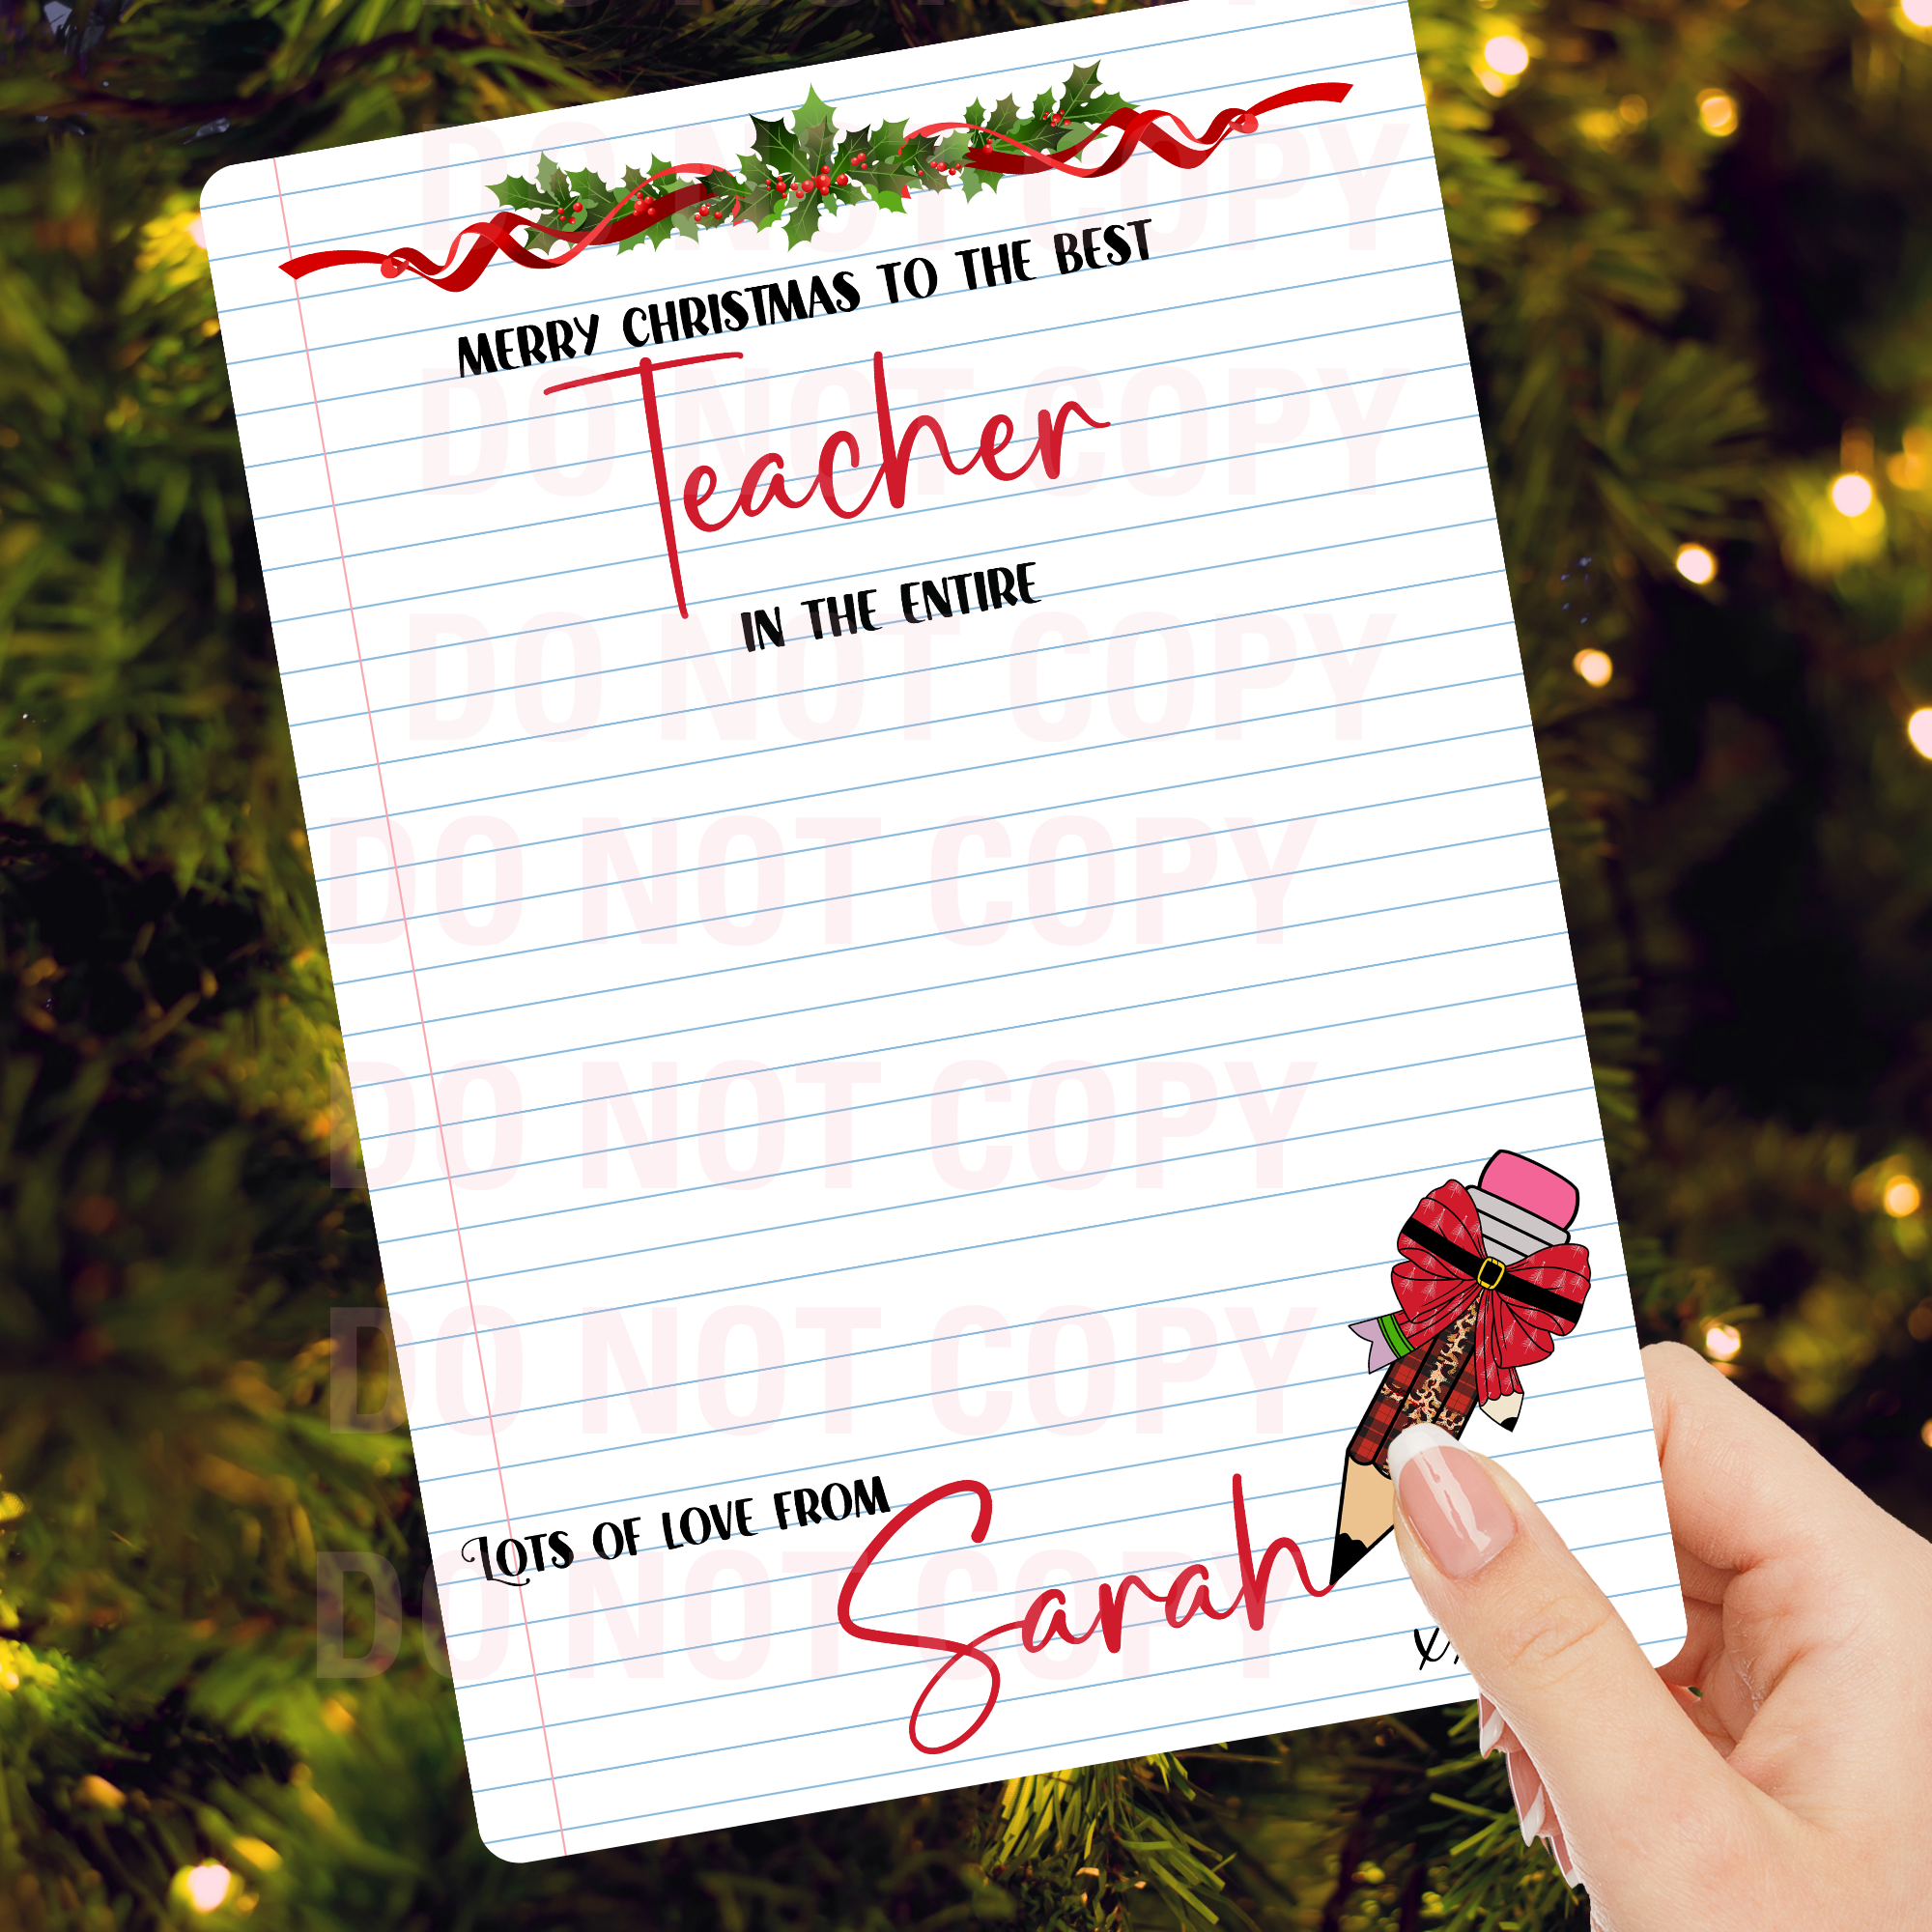 DO NOT COPY
DO NOT COPY
MERRY CHRISTMAS TO THE BEST
DO NOT COPY
Teacher
IN THE ENTIRE
DO NOT COPY
DO NOT COPY
DO NOT COPY
DO NOT COPY
LOTS OF LOVE FROM
Sarah
DO NOT COPY